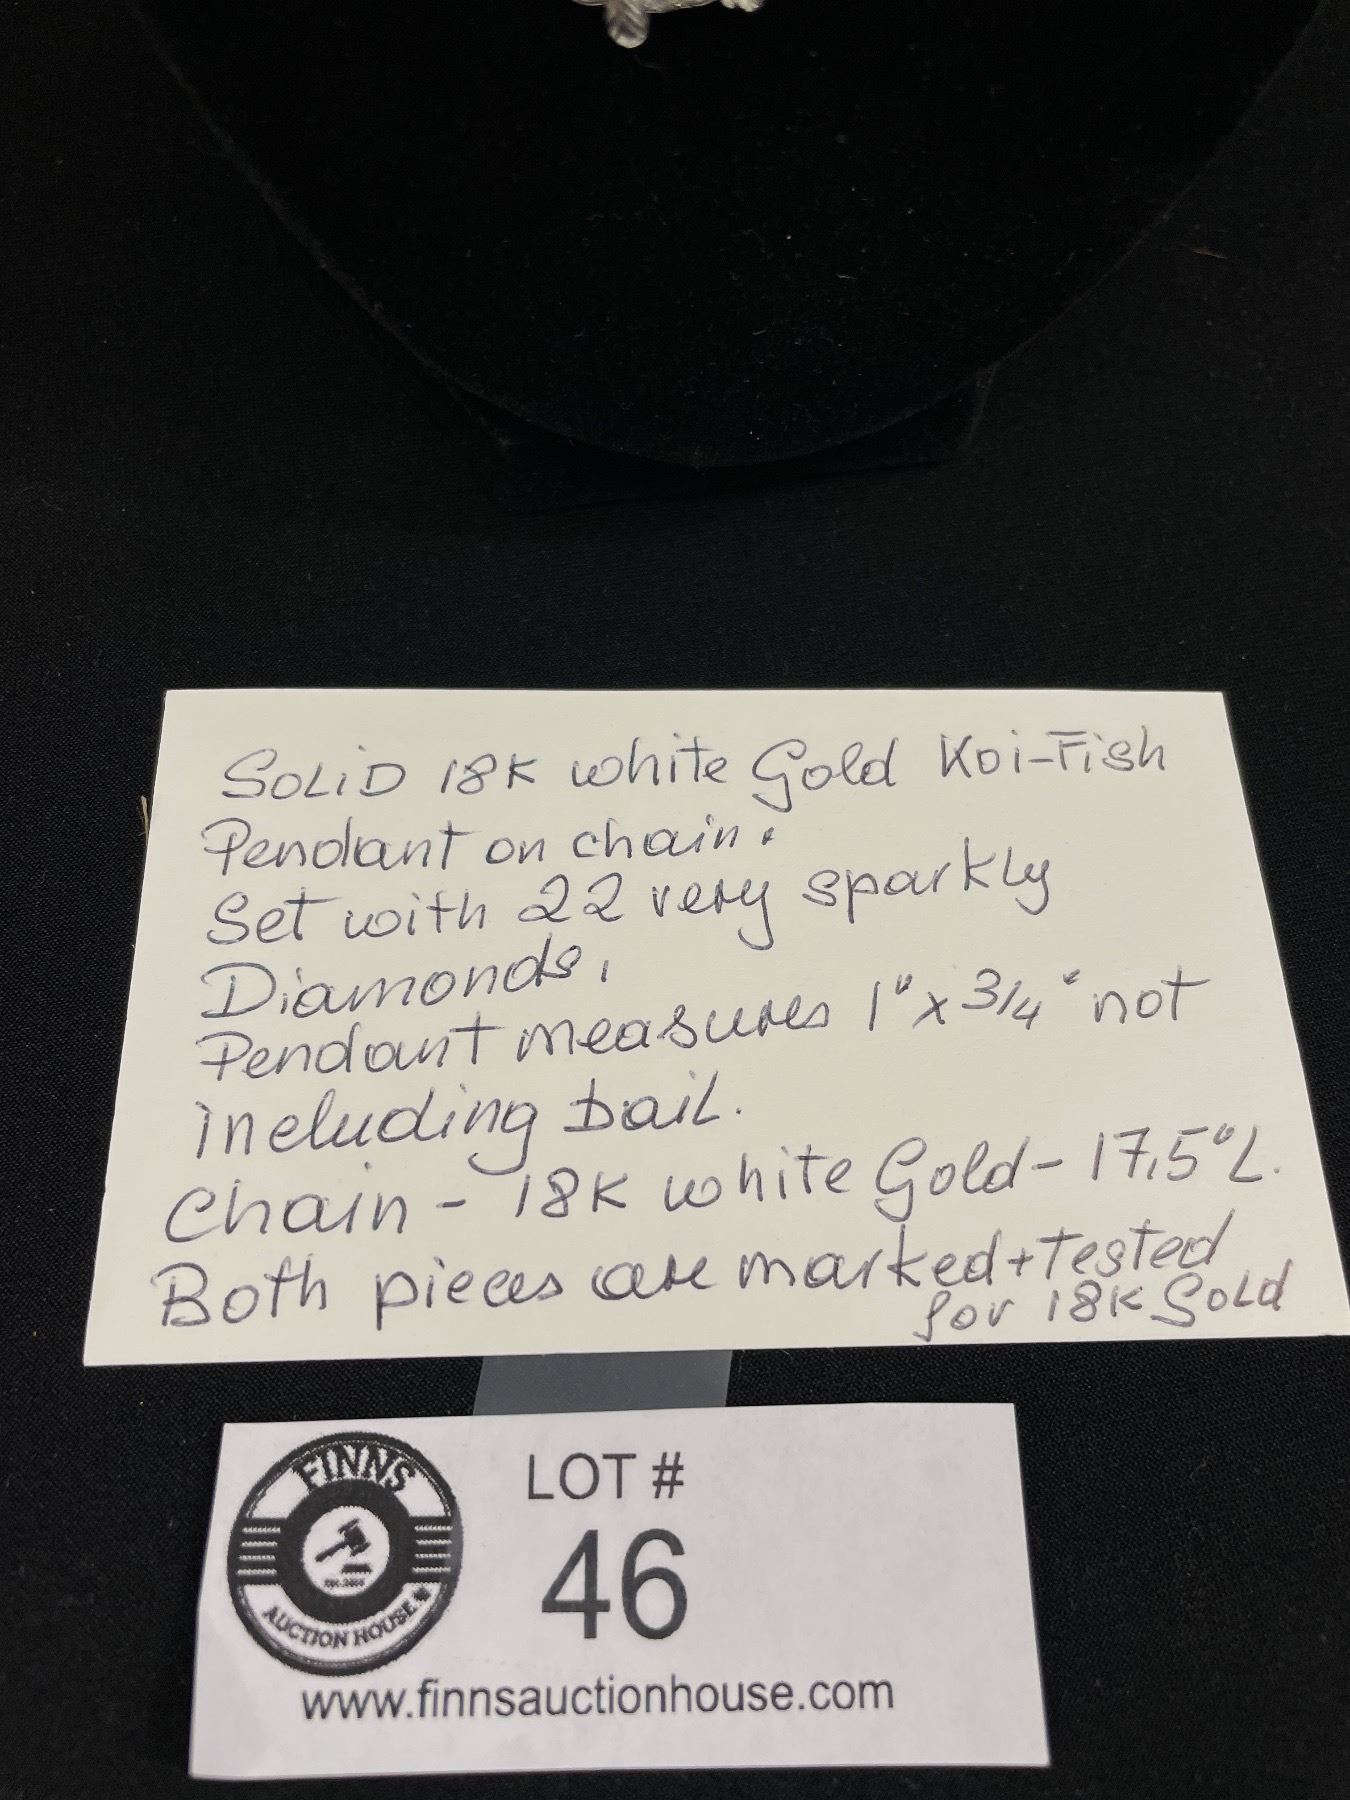 SOLiD 18K white Gold Koi-Fish
Pendant on chain.
Set with 22 very sparkly
Diamonds,
Pendant measures 1" x 3/4" not
including bail.
Chain - 18K white Gold - 17,5" L.
Both pieces are marked + tested
for 18K Gold
FINNS
AUCTION HOUSE
LOT #
46
www.finnsauctionhouse.com